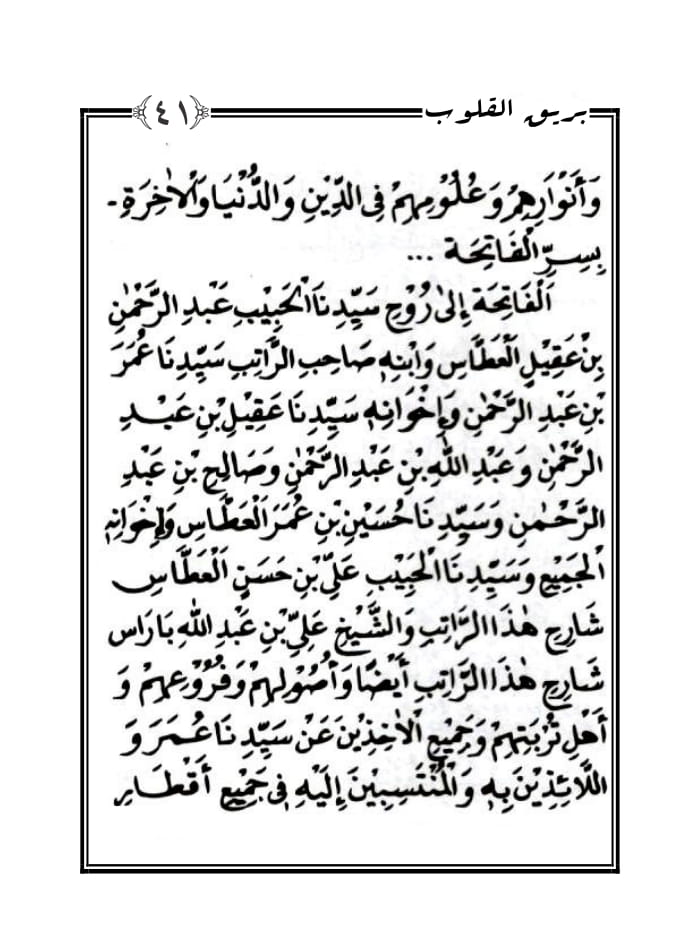 بريق القلوب
٤١
وَأَنْوَارِهِمْ وَعُلُوْمِهِمْ فِى الدِّيْنِ وَالدُّنْيَا وَالْاٰخِرَةِ -
بِسِرِّ الْفَاتِحَة ...
اَلْفَاتِحَة إِلىٰ رُوْحِ سَيِّدِنَا الْحَبِيْبِ عَبْدِ الرَّحْمٰنِ
بِنْ عَقِيْلِ الْعَطَّاسِ وَابْنِهٖ صَاحِبِ الرَّاتِبِ سَيِّدِنَا عُمَرَ
بْنِ عَبْدِ الرَّحْمٰنِ وَإِخْوَانِهٖ سَيِّدِنَا عَقِيْلِ بْنِ عَبْدِ
الرَّحْمٰنِ وَعَبْدِ اللهِ بْنِ عَبْدِ الرَّحْمٰنِ وَصَالِحِ بْنِ عَبْدِ
الرَّحْمٰنِ وَسَيِّدِنَا حُسَيْنِ بْنِ عُمَرَ الْعَطَّاسِ وَإِخْوَانِهٖ
الْجَمِيْعِ وَسَيِّدِنَا الْحَبِيْبِ عَلِيِّ بْنِ حَسَنِ الْعَطَّاسِ
شَارِحِ هٰذَا الرَّاتِبِ وَالشَّيْخِ عَلِيِّ بْنِ عَبْدِ اللهِ بَارَاس
شَارِحِ هٰذَا الرَّاتِبِ أَيْضًا وَأُصُوْلِهِمْ وَفُرُوْعِهِمْ وَ
أَهْلِ تُرْبَتِهِمْ وَجَمِيْعِ الْاٰخِذِيْنَ عَنْ سَيِّدِنَا عُمَرَ وَ
اللَّائِذِيْنَ بِهٖ وَالْمُنْتَسِبِيْنَ إِلَيْهِ فِى جَمِيْعِ أَقْطَارِ